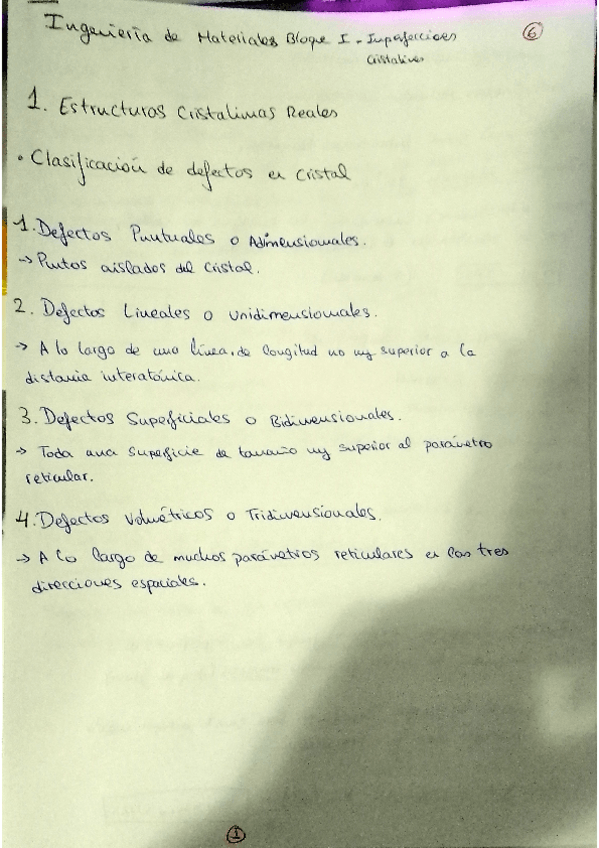 Ingeniería de Materiales Bloque I - Imperfecciones
Cristalinas
6
1. Estructuras Cristalinas Reales
• Clasificación de defectos en Cristal
1. Defectos Puntuales o Adimensionales.
→ Puntos aislados del Cristal.
2. Defectos Lineales o Unidimensionales.
→ A lo largo de una línea, de longitud no muy superior a la
distancia interatómica.
3. Defectos Superficiales o Bidimensionales.
→ Toda una Superficie de tamaño muy superior al parámetro
reticular.
4. Defectos Volumétricos o Tridimensionales.
→ A lo largo de muchos parámetros reticulares en las tres
direcciones espaciales.
1